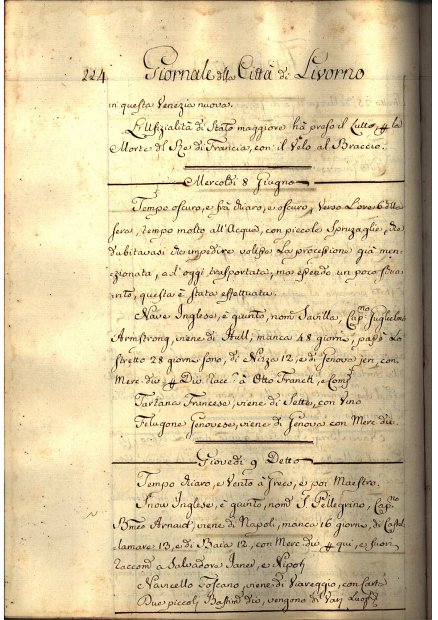 224. Giornale della Città di Livorno
in questa Venezia nuova.
L'Ufizialità di Stato maggiore hà preso il Lutto, p la
Morte del Re di Francia, con il Velo al Braccio.
Mercoldì 8 Giugno
Tempo oscuro, e frà chiaro, e oscuro, verso l'ore 6 della
sera, tempo molto all'Acqua, con piccole Spruzaglie, che
dubitavasi che impedire volesse La processione già men-
zionata, a d'oggi trasportata, ma essendo un poco schia-
rito, questa è stata effettuata.
Nave Inglese, è giunto, nom Savilla, Capno Guglielmo
Armstrong, viene di Hull, manca 48 giorni, passò Lo
stretto 28 giorni sono, di Niza 12, e di Genova jeri, con
Merc. div p Div. racc. a Otto Franck, e Comp
Tartana Francese, viene di Sette, con Vino
Felugone Genovese, viene di Genova con Merc. div.
Giovedì 9 Detto
Tempo chiaro, e Vento à Greco, e poi Maestro.
Snow Inglese, è giunto, nom S. Pellegrino, Capno
Bmeo Arnaud, viene di Napoli, manca 16 giorni, di Castel
lamare 13, e di Baia 12, con Merc. div p qui, e fuori
raccom a Salvadore Janer, e Nipoti
Navicello Toscano, viene di Viareggio, con
Due piccoli Bastim div, vengono di Varj Luoghi